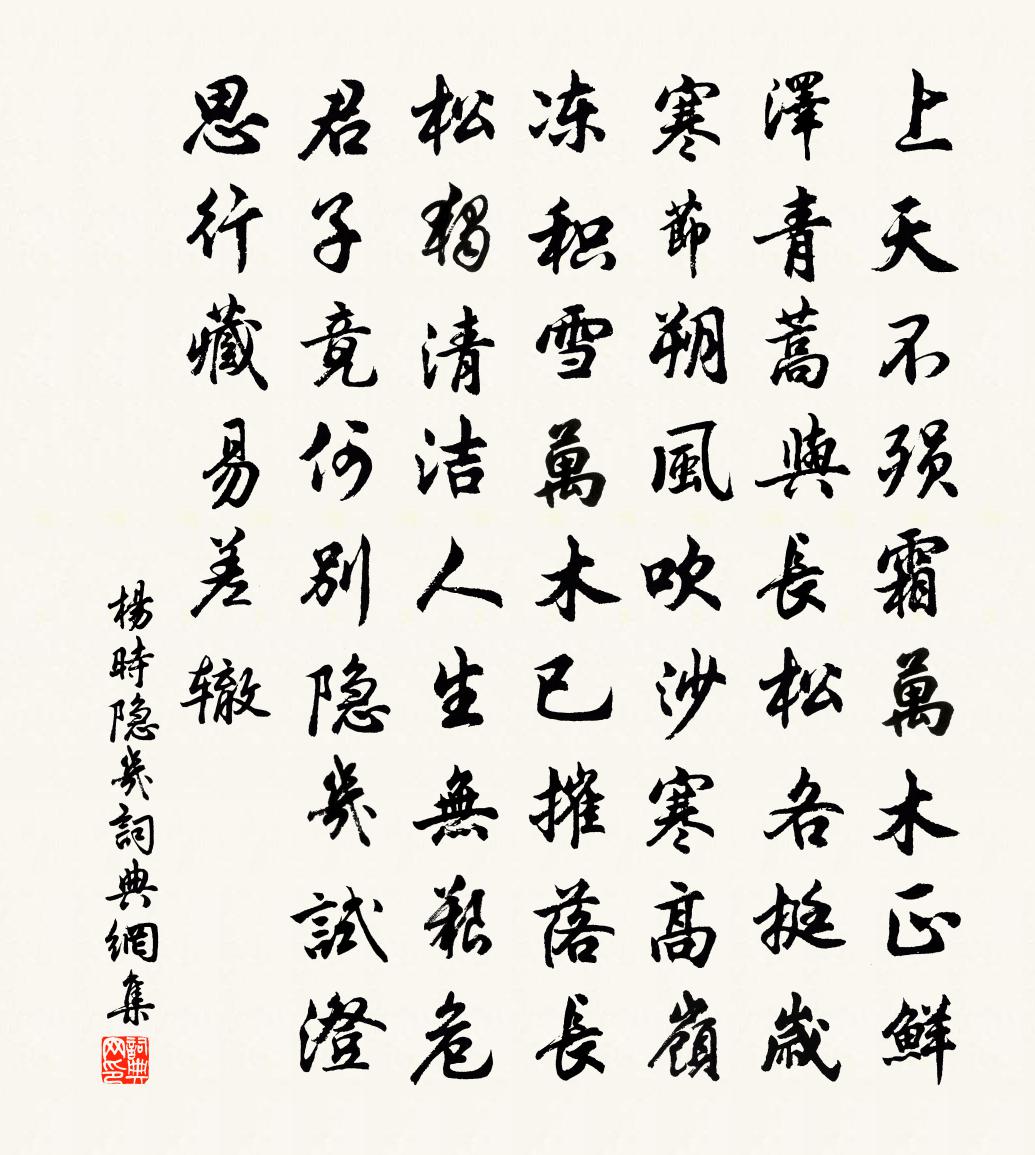 上天不殒霜萬木正鮮
澤青蒿與長松各挺歲
寒節朔風吹沙寒高嶺
冻积雪萬木已摧落長
松獨清洁人生無艱危
君子竟何別隐幾試澄
思行藏易差辙
楊時隐幾詞典網集
詞典
网印